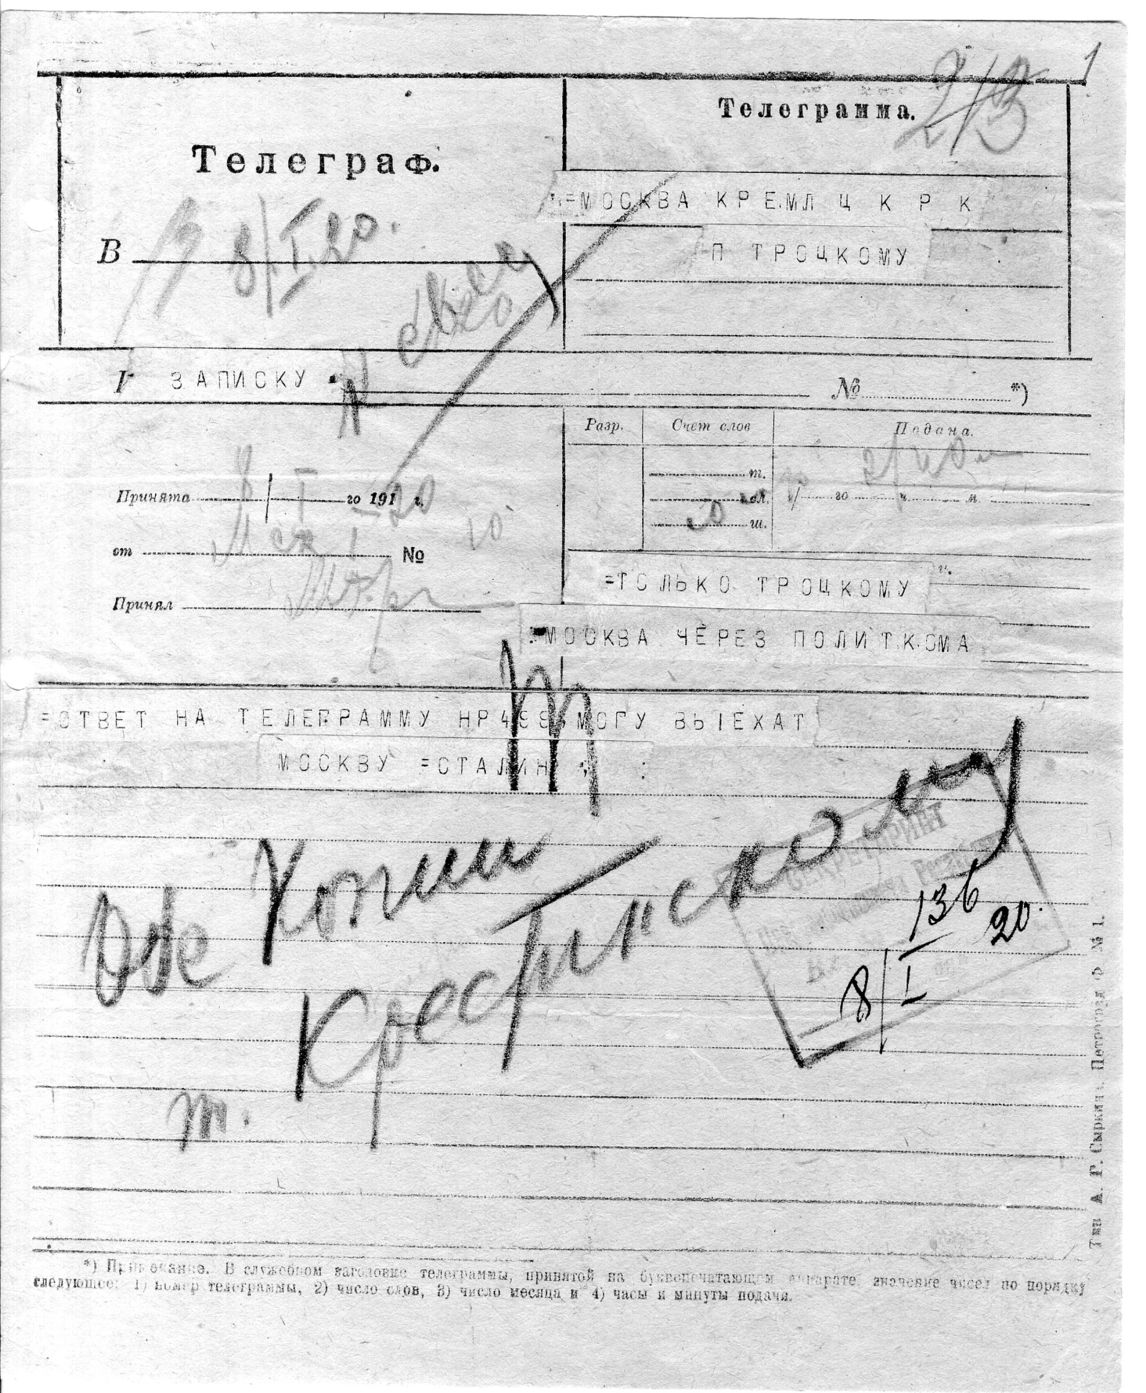 1
Телеграф.
Телеграмма.
2/3
=МОСКВА КРЕМЛ Ц К Р К
П ТРОЦКОМУ
В
8/I 20.
ЗАПИСКУ
№ *)
Разр. Счет слов Подана.
Принята 8/I го 191 г. 20
т.
сл. го ч. м.
ш.
от № 10
Принял
=ТОЛЬКО ТРОЦКОМУ
=МОСКВА ЧЕРЕЗ ПОЛИТКОМА
=ОТВЕТ НА ТЕЛЕГРАММУ НР МОГУ ВЫЕХАТ
МОСКВУ =СТАЛИН
Обе Копии
т. Крестинскому
СЕКРЕТАРИАТ
136
8/I 20.
Тип. А. Р. Сыркина. Петроград. Ф № 1.
*) Примечание. В служебном заголовке телеграммы, принятой на буквопечатающем аппарате, значение чисел по порядку
следующее: 1) номер телеграммы, 2) число слов, 3) число месяца и 4) часы и минуты подачи.